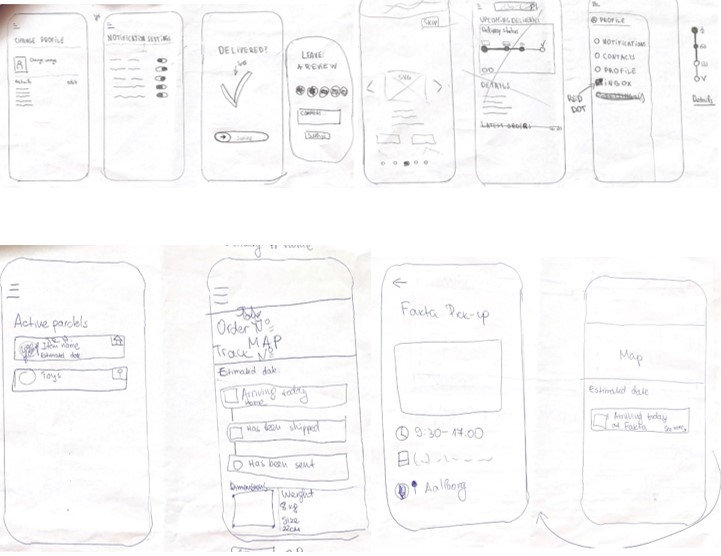 CHANGE PROFILE
Change image
NOTIFICATION SETTING
DELIVERED!
LEAVE
A REVIEW
COMMENT...
SKIP
SVG
UPCOMING DELIVERIES
Delivery status
DETAILS
LATEST ORDERS
PROFILE
NOTIFICATION
CONTACTS
PROFILE
INBOX
RED
DOT
Details
Active parcels
Item name
Estimated day
Toys
Order No
MAP
Track No
Estimated date:
Arriving today
home
Has been shipped
Has been sent
Dimensions
Weight
8 kg
Size
22cm
Fakta Pick-up
9:30-17.00
Aalborg
Map
Estimated date
Arriving today
at Fakta